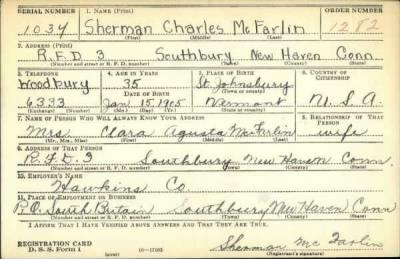 SERIAL NUMBER 1. NAME (Print) ORDER NUMBER
1034 Sherman Charles McFarlin 1282
(First) (Middle) (Last)
2. ADDRESS (Print)
R.F.D 3 Southbury New Haven Conn.
(Number and street or R. F. D. number) (Town) (County) (State)
3. TELEPHONE 4. AGE IN YEARS 5. PLACE OF BIRTH 6. COUNTRY OF CITIZENSHIP
Woodbury 35 St. Johnsbury
DATE OF BIRTH (Town or county)
6333 Jan 15 1905 Vermont U.S.A
(Exchange) (Number) (Mo.) (Day) (Yr.) (State or country)
7. NAME OF PERSON WHO WILL ALWAYS KNOW YOUR ADDRESS 8. RELATIONSHIP OF THAT PERSON
Mrs. Clara Agusta McFarlin wife
(Mr., Mrs., Miss) (First) (Middle) (Last)
9. ADDRESS OF THAT PERSON
R.F.D. 3 Southbury New Haven Conn.
(Number and street or R. F. D. number) (Town) (County) (State)
10. EMPLOYER'S NAME
Hawkins Co.
11. PLACE OF EMPLOYMENT OR BUSINESS
P.O. South Britain Southbury New Haven Conn
(Number and street or R. F. D. number) (Town) (County) (State)
I AFFIRM THAT I HAVE VERIFIED ABOVE ANSWERS AND THAT THEY ARE TRUE.
REGISTRATION CARD
D. S. S. Form 1 (over) 16—17105 Sherman McFarlin
(Registrant's signature)